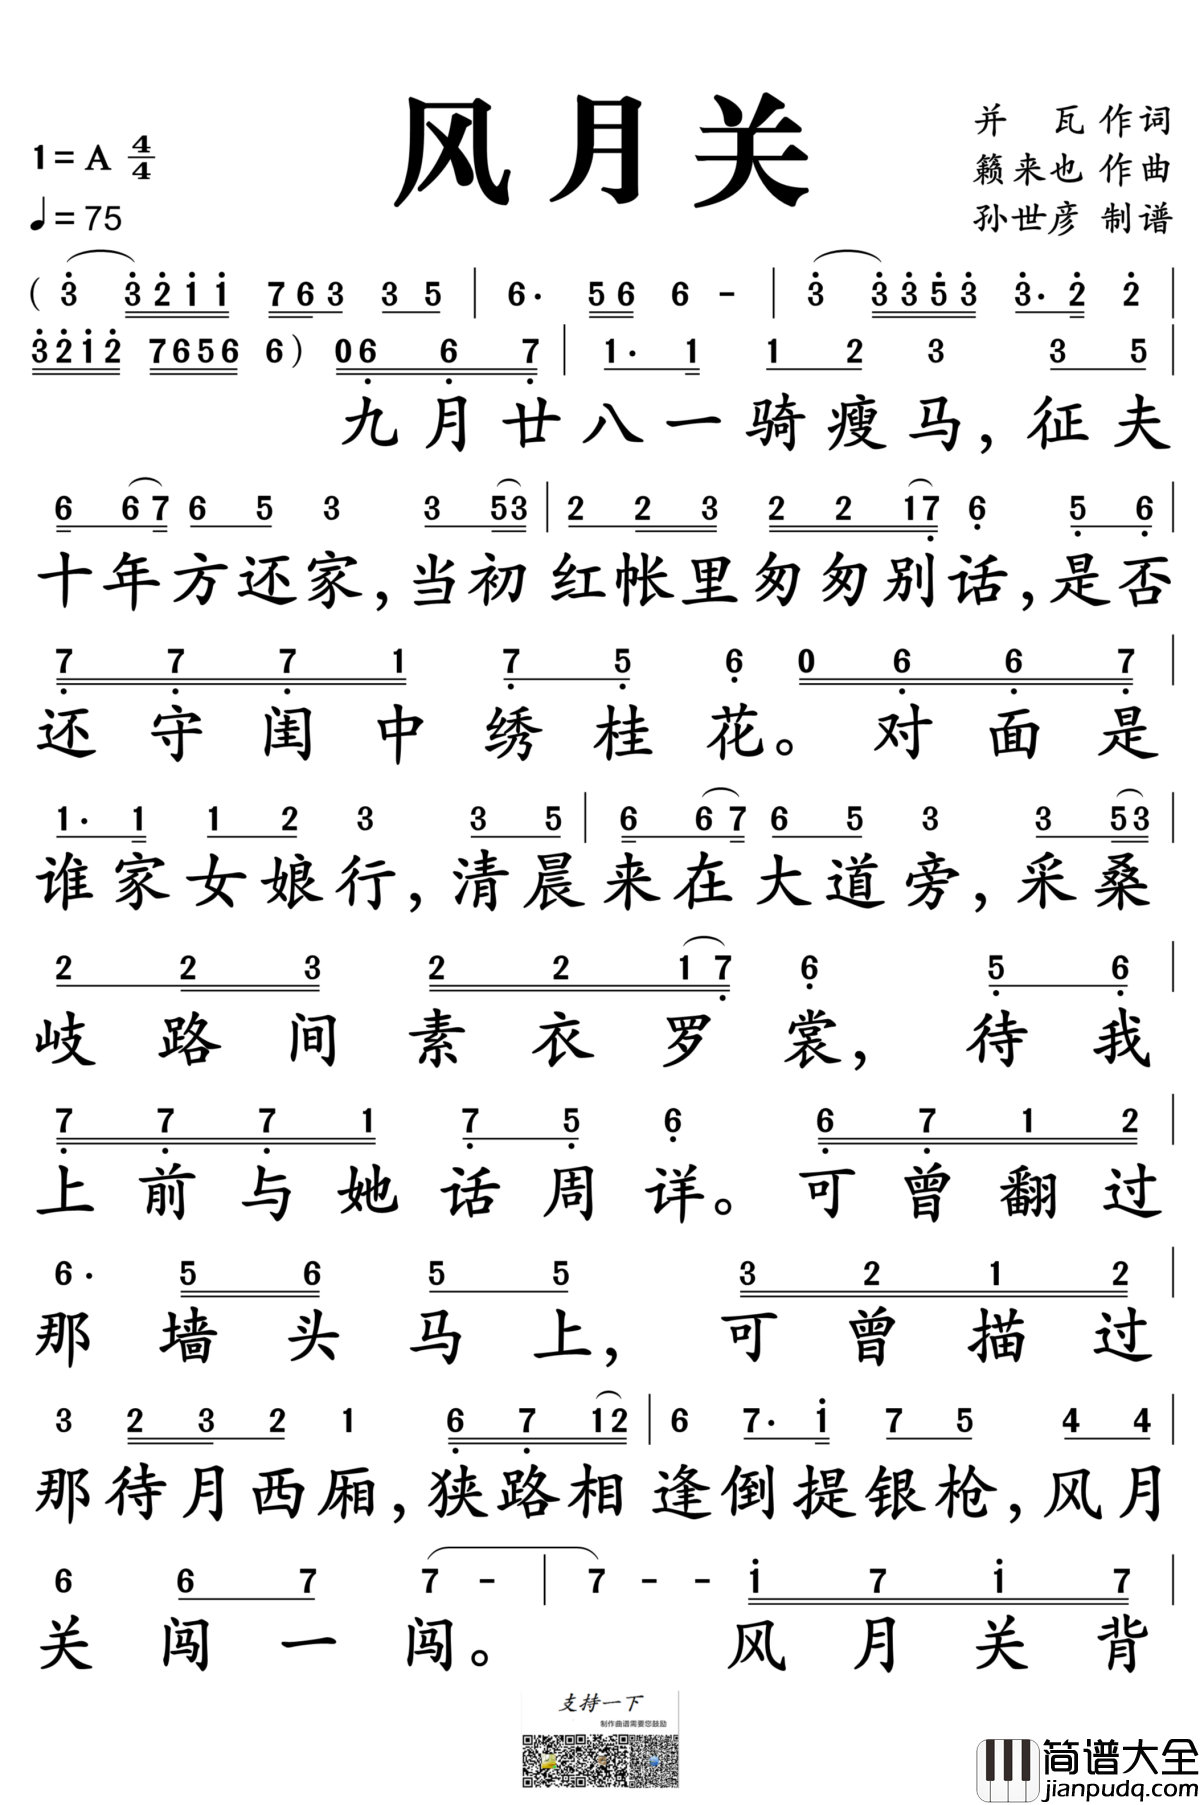 风月关
1=A 4/4
♩=75
并 瓦 作词
籁来也 作曲
孙世彦 制谱
( 3̇ 3̇2̇1̇1̇ 763 35 | 6· 56 6 - | 3̇ 3̇3̇5̇3̇ 3̇·2̇ 2̇ |
3̇2̇1̇2̇ 7656 6 ) 06̣ 6̣ 7̣ | 1· 1 1 2 3 3 5 |
九月廿八一骑瘦马,征夫
6 67 6 5 3 3 53 | 2 2 3 2 2 17̣ 6̣ 5̣ 6̣ |
十年方还家,当初红帐里匆匆别话,是否
7̣ 7̣ 7̣ 1 7̣ 5̣ 6̣ 0 6̣ 6̣ 7̣ |
还守闺中绣桂花。对面是
1· 1 1 2 3 3 5 | 6 67 6 5 3 3 53 |
谁家女娘行,清晨来在大道旁,采桑
2 2 3 2 2 17̣ 6̣ 5̣ 6̣ |
歧路间素衣罗裳,待我
7̣ 7̣ 7̣ 1 7̣ 5̣ 6̣ 6̣ 7̣ 1 2 |
上前与她话周详。可曾翻过
6· 5 6 5 5 3 2 1 2 |
那墙头马上,可曾描过
3 2 3 2 1 6̣ 7̣ 12 | 6 7· 1̇ 7 5 4 4 |
那待月西厢,狭路相逢倒提银枪,风月
6 6 7 7 - | 7 - - 1̇ 7 1̇ 7 |
关闯一闯。风月关背
支持一下
制作曲谱需要您鼓励
简谱大全
jianpudq.com